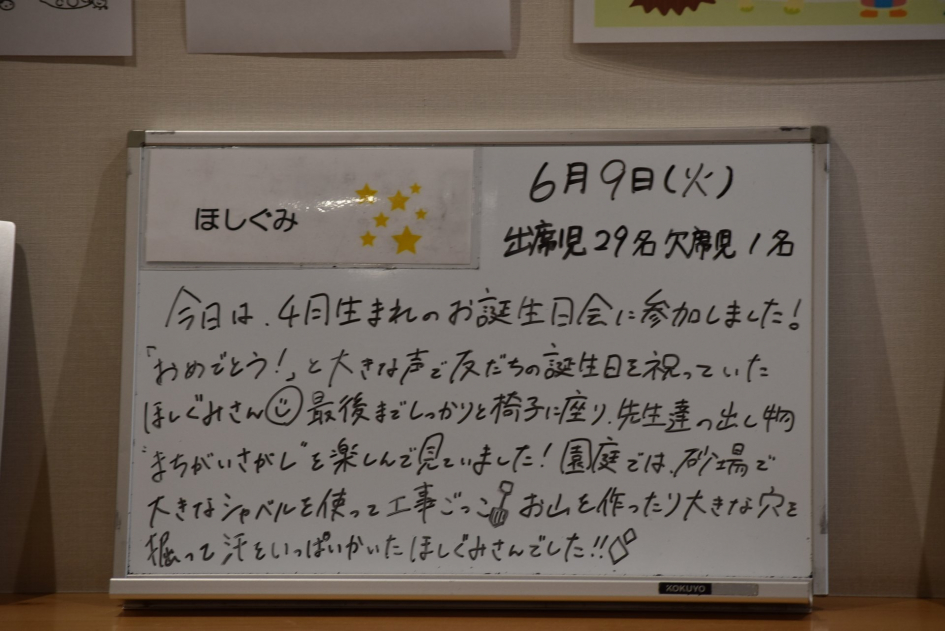 ほしぐみ
6月9日(火)
出席児29名欠席児1名
今日は、4月生まれのお誕生日会に参加しました!
「おめでとう!」と大きな声で友だちの誕生日を祝っていた
ほしぐみさん 最後までしっかりと椅子に座り、先生達の出し物
"まちがいさがし"を楽しんで見ていました!園庭では、砂場で
大きなシャベルを使って工事ごっこ お山を作ったり大きな穴を
掘って汗をいっぱいかいたほしぐみさんでした!!
KOKUYO